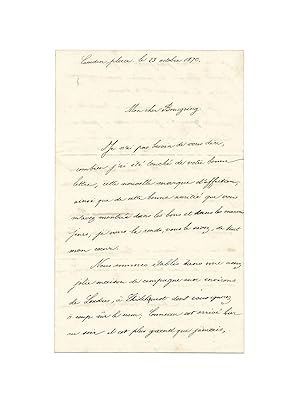 Camden place le 23 octobre 1870.
Mon cher
Je n'ai pas besoin de vous dire,
combien j'ai été touchée de votre bonne
lettre, cette nouvelle marque d'affection,
ainsi que de cette bonne amitié que vous
m'avez montrée dans les bons et dans les mauvais
jours, je vous le rends, vous le savez, de tout
mon cœur.
Nous sommes établis dans une assez
jolie maison de campagne aux environs
de Londres, à Chislehurst dont vous
à coup sûr le nom, est arrivé hier
au soir il est plus grand que jamais,